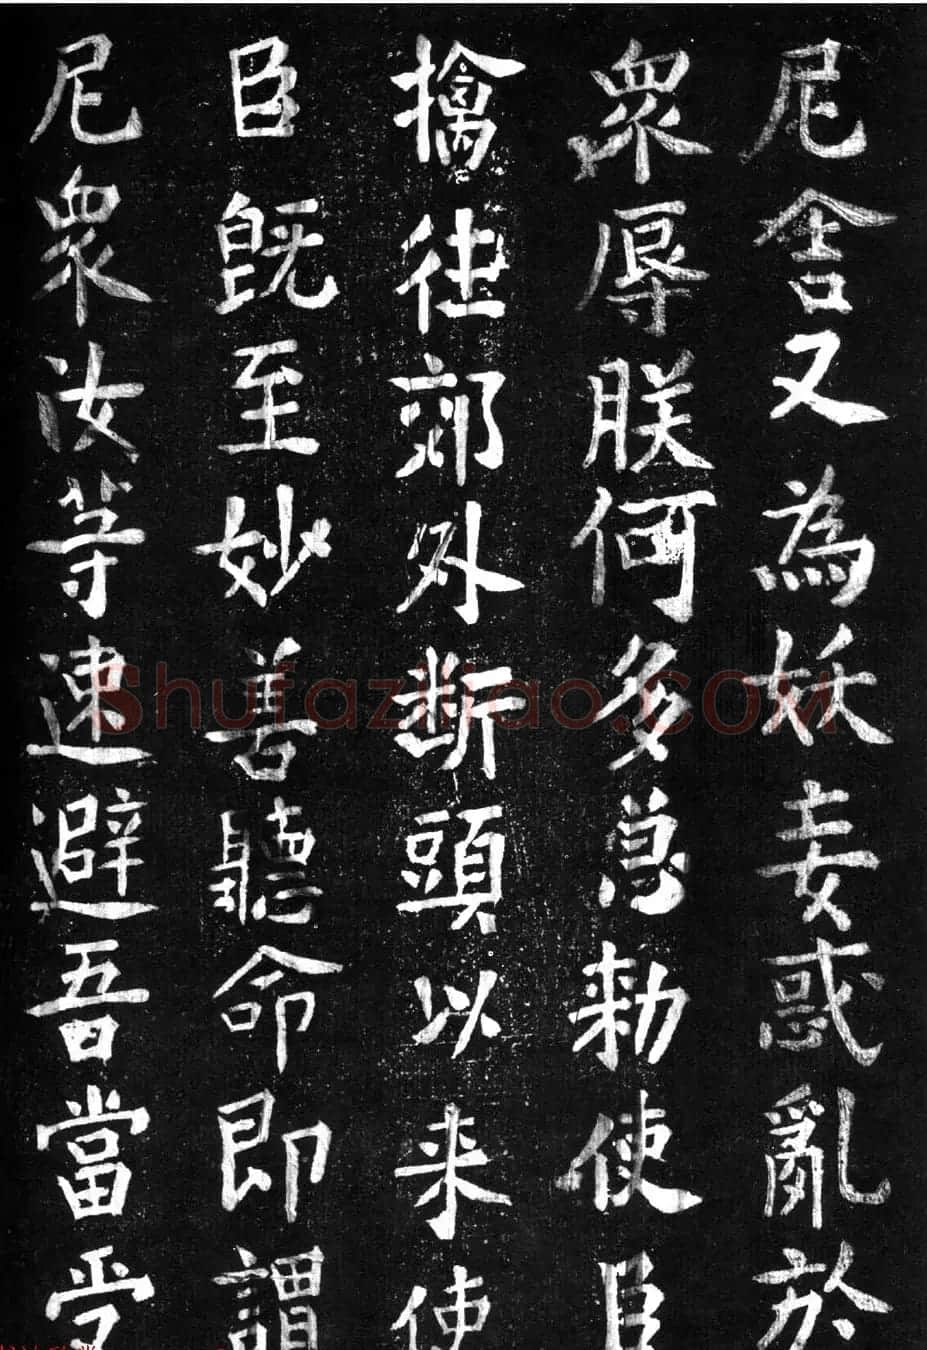 尼舍又為妖妄惑亂於
眾辱朕何多忽勑使臣
擒往郊外斷頭以来使
臣既至妙善聽命即謂
尼眾汝等速避吾當受
Shufaziliao.COM